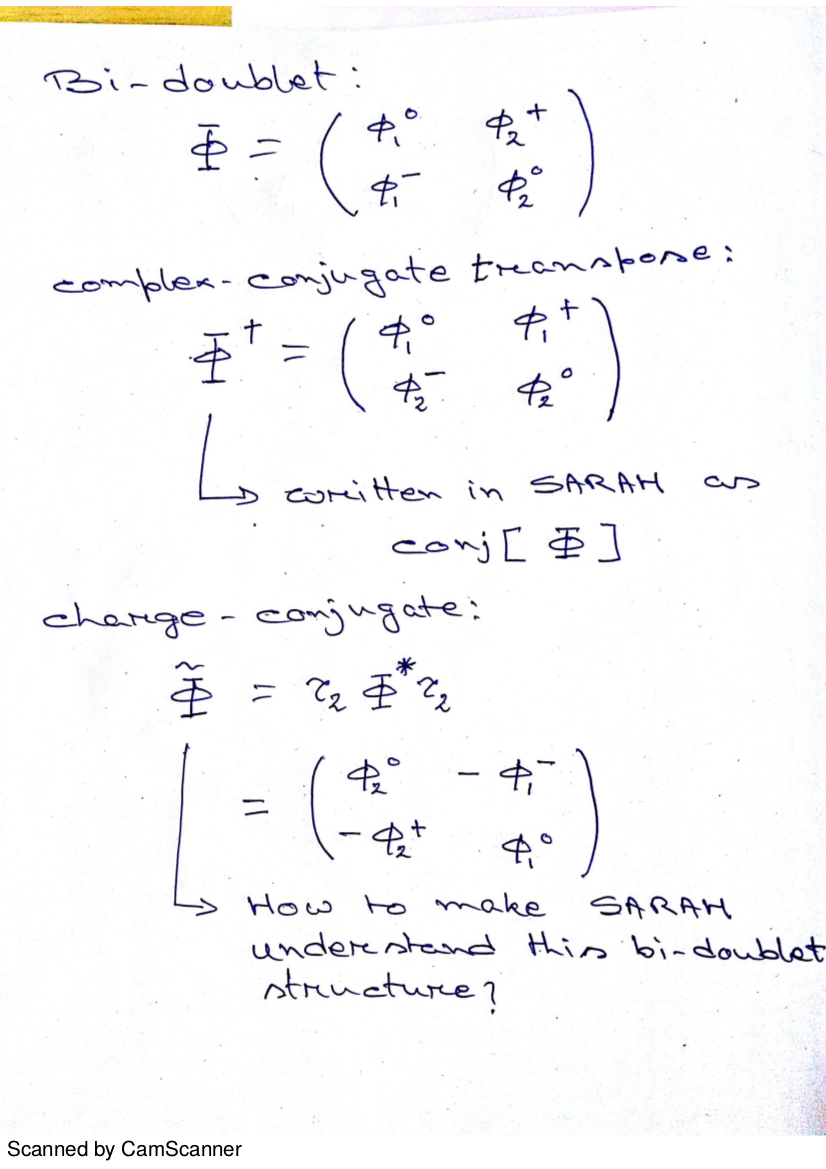 Bi-doublet:
Φ = ( ϕ₁⁰ ϕ₂⁺
ϕ₁⁻ ϕ₂⁰ )
complex-conjugate transpose:
Φ† = ( ϕ₁⁰ ϕ₁⁺
ϕ₂⁻ ϕ₂⁰ )
↳ written in SARAH as
conj[ Φ ]
charge-conjugate:
Φ̃ = τ₂ Φ* τ₂
= ( ϕ₂⁰ -ϕ₁⁻
-ϕ₂⁺ ϕ₁⁰ )
↳ How to make SARAH
understand this bi-doublet
structure?
Scanned by CamScanner